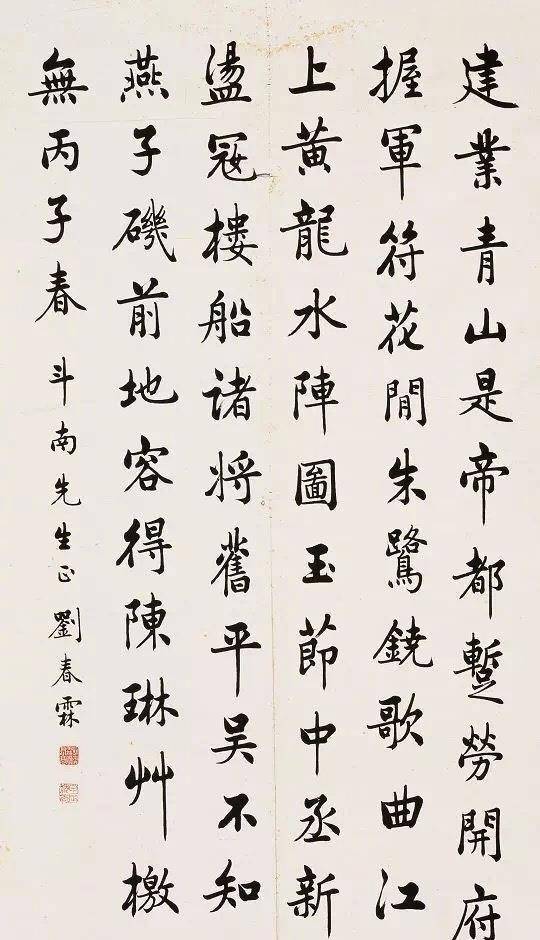 建業青山是帝都蹔勞開府
握軍符花閒朱鷺鐃歌曲江
上黄龍水陣圖玉節中丞新
盪冦樓船諸將舊平吴不知
燕子磯前地容得陳琳艸檄
無丙子春 斗南先生正 劉春霖